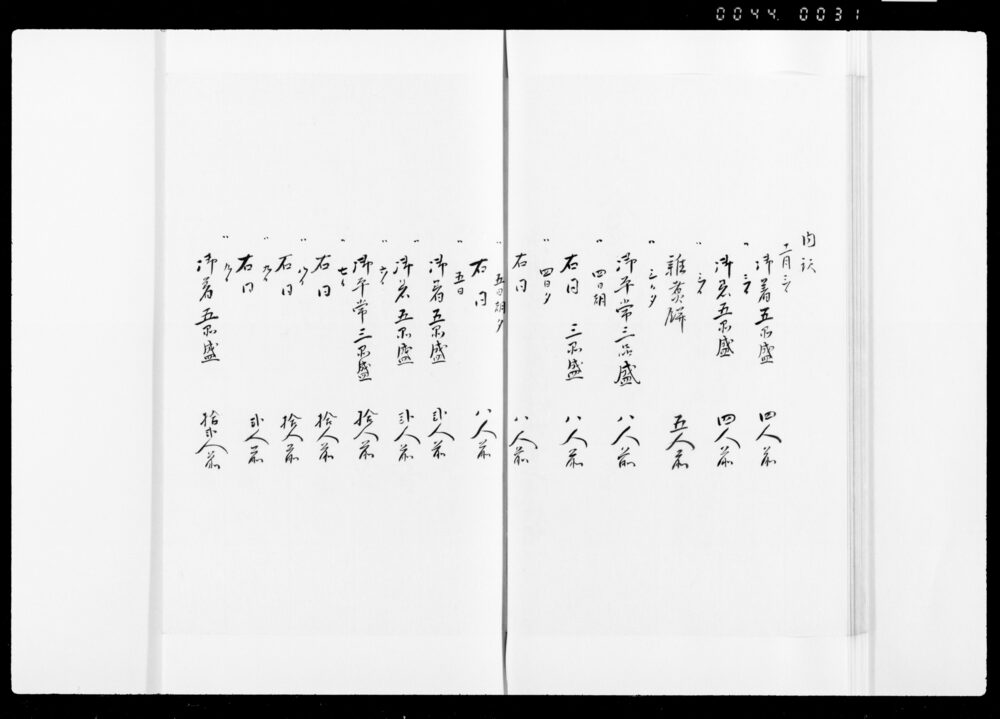 0044. 0031
内訳
十一月三日
〃 御着五品盛 四人前
三日
〃 御忍五品盛 四人前
三日
〃 雑煮餅 五人前
三日夕
〃 御平常三品盛 八人前
四日朝
〃 右同 三品盛 八人前
四日夕
〃 右同 八人前
五日朝夕
〃 右同 八人前
五日
〃 御着五品盛 弐人前
〃 御忍五品盛 弐人前
六日
〃 御平常三品盛 拾人前
七日
〃 右同 拾人前
八日
〃 右同 拾人前
九日
〃 右同 弐人前
九日
〃 御着五品盛 拾弐人前